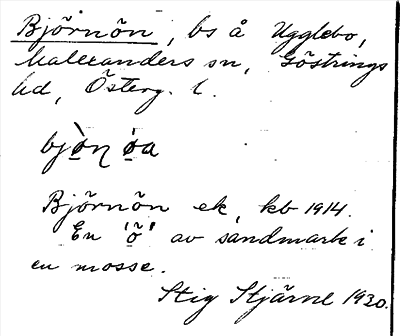 Björnön, bs å Ugglebo,
Kalexanders sn, Göstrings
hd, Österg. l.
bjò̤ṇ ö̤a
Björnön ek, kb 1914.
En 'ö' av sandmark i
en mosse.
Stig Stjärne 1930.